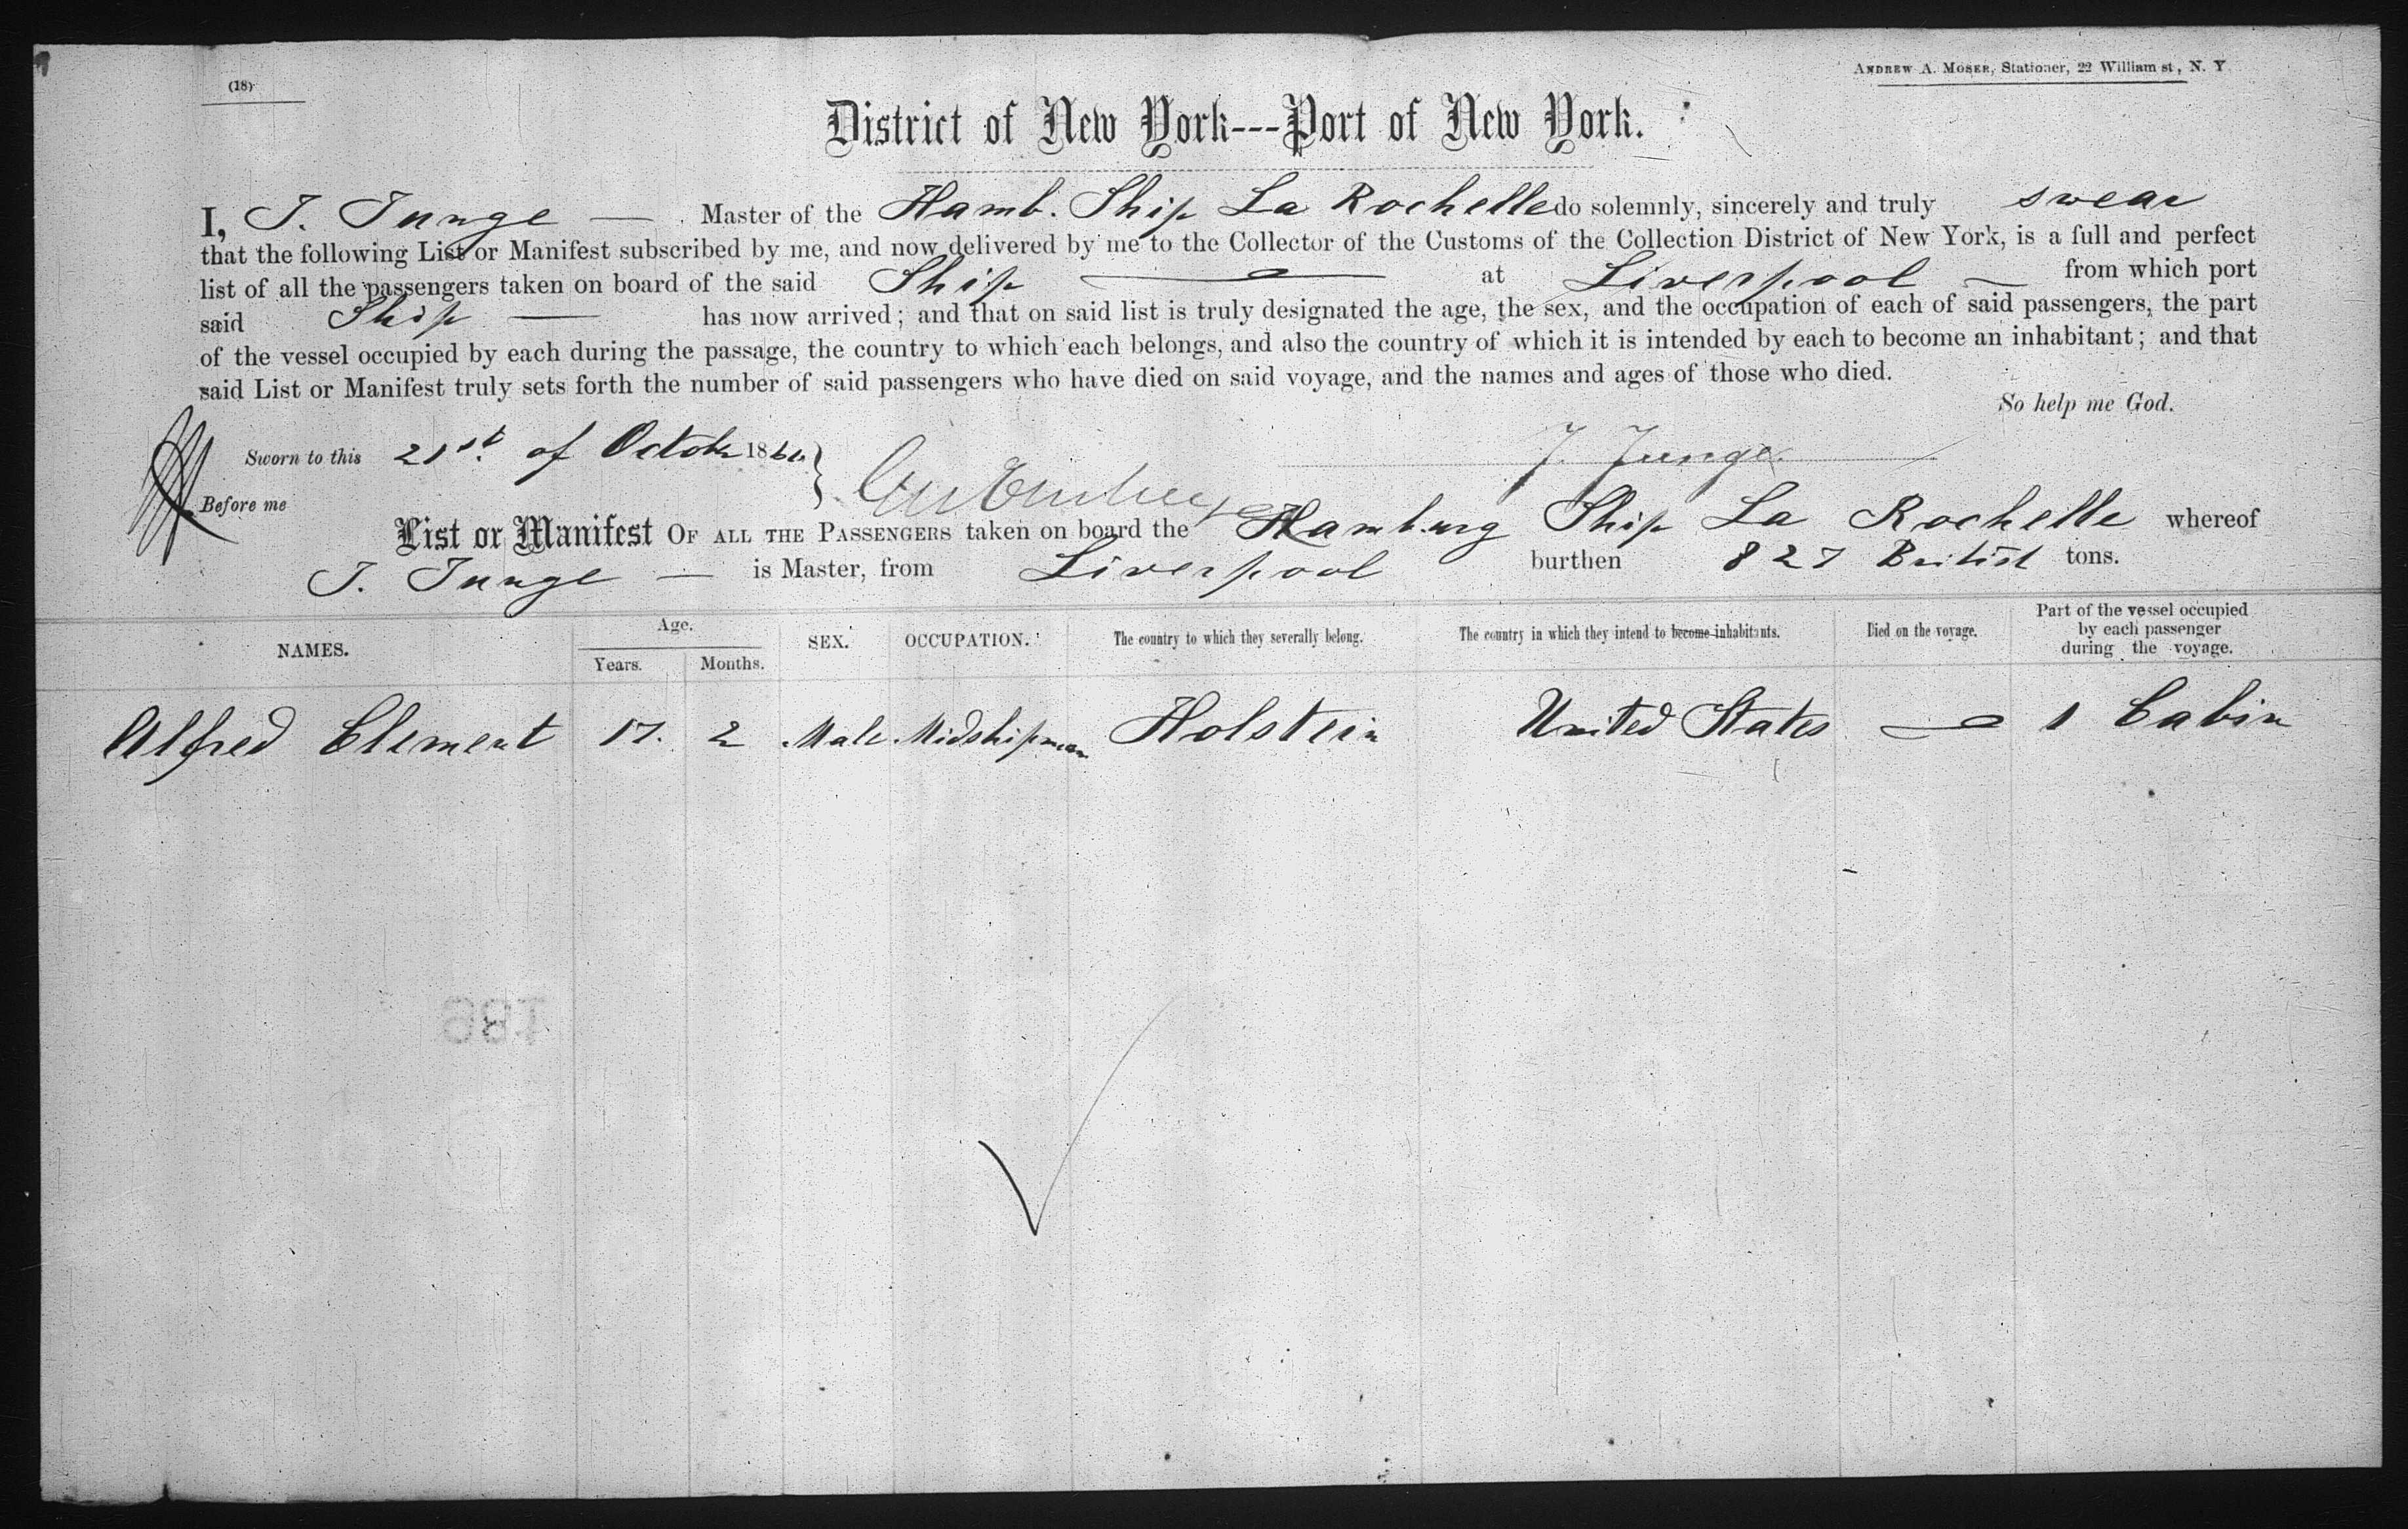 (18)
ANDREW A. MOSER, Stationer, 22 William st, N. Y
District of New York---Port of New York.
I, J. Junge — Master of the Hamb. Ship La Rochelle do solemnly, sincerely and truly swear
that the following List or Manifest subscribed by me, and now delivered by me to the Collector of the Customs of the Collection District of New York, is a full and perfect
list of all the passengers taken on board of the said Ship — at Liverpool — from which port
said Ship — has now arrived; and that on said list is truly designated the age, the sex, and the occupation of each of said passengers, the part
of the vessel occupied by each during the passage, the country to which each belongs, and also the country of which it is intended by each to become an inhabitant; and that
said List or Manifest truly sets forth the number of said passengers who have died on said voyage, and the names and ages of those who died.
So help me God.
Sworn to this 21st. of Octob 186
J. Junge
Before me
List or Manifest OF ALL THE PASSENGERS taken on board the Hamburg Ship La Rochelle whereof
J. Junge — is Master, from Liverpool burthen 827 British tons.
NAMES. Age. Years. Months. SEX. OCCUPATION. The country to which they severally belong. The country in which they intend to become inhabitants. Died on the voyage. Part of the vessel occupied by each passenger during the voyage.
Alfred Clement 17. 2 Male Midshipman Holstein United States — 1 Cabin